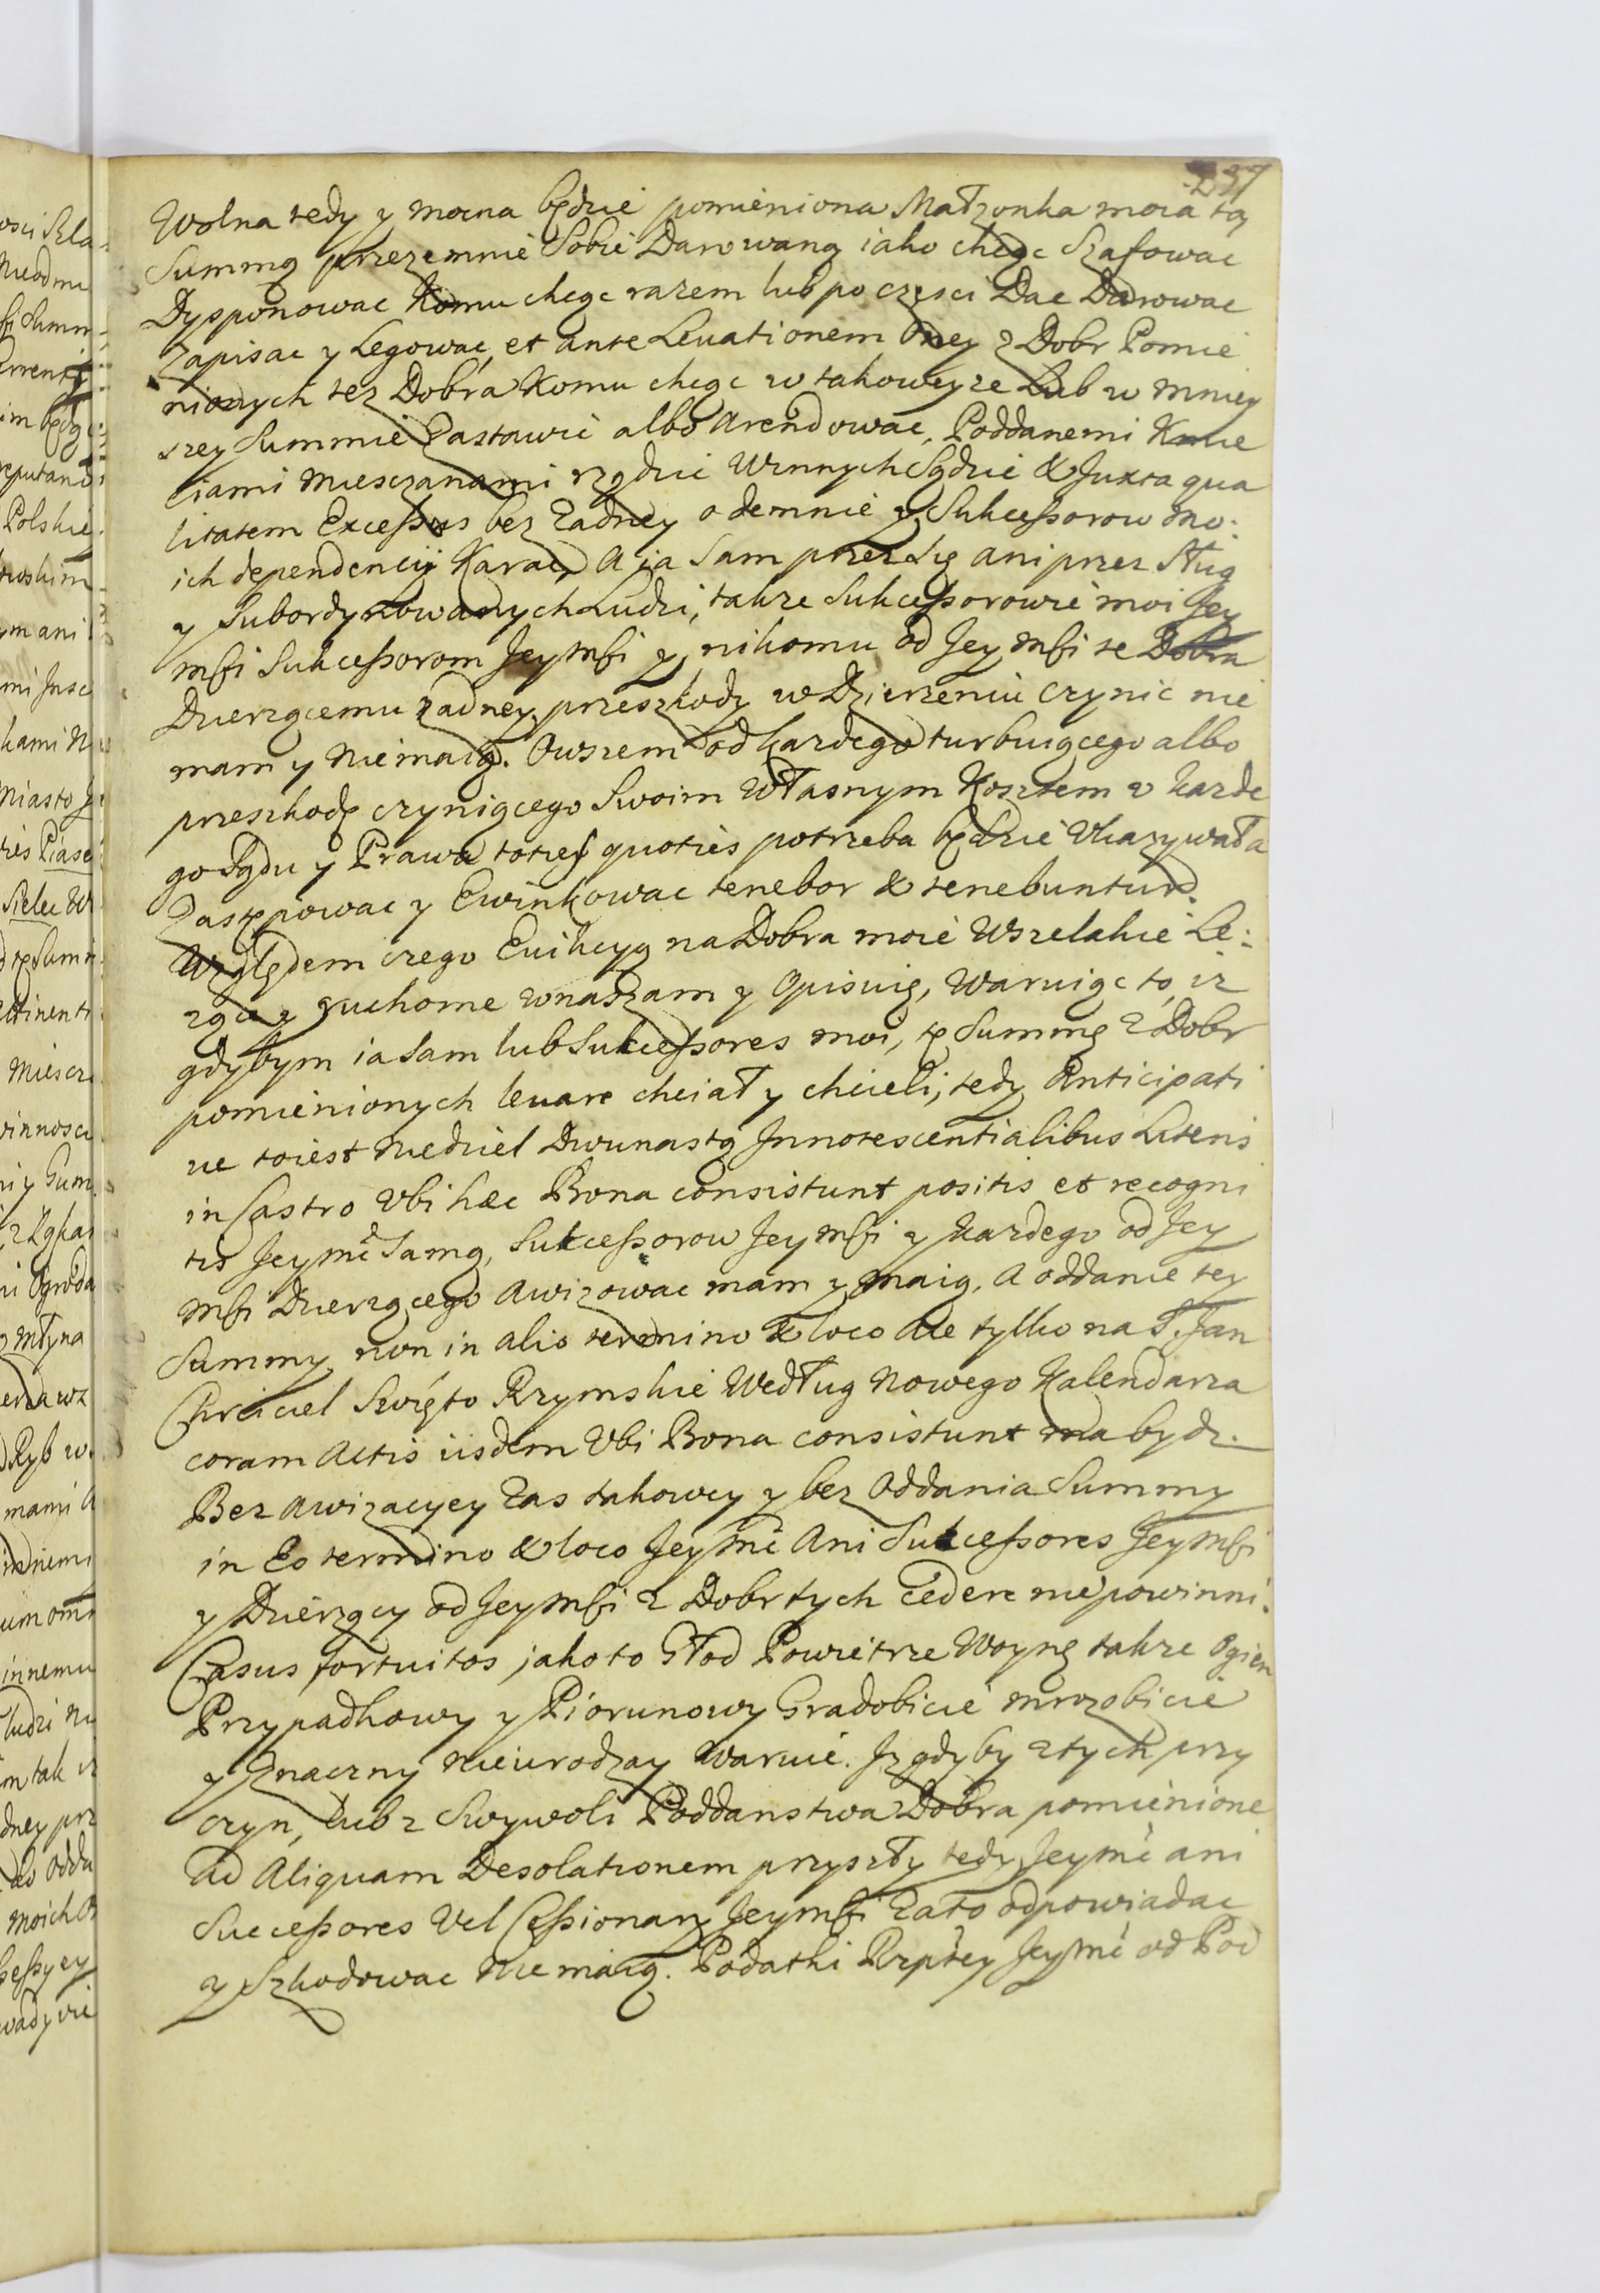 Wolna tedy y mocna będzie pomieniona Małzonka moia tą
Summą przezemnie Sobie Darowaną iako chcąc Szafowac
Dysponowac Komu chcąc razem lub po częsci Dac Darowac
Zapisac y Legowac, et ante Levationem Oney z Dobr Pomie
nionych tez Dobra Komu chcąc w takoweyze Lub w mniey
szey Summie Zastawić albo Arendowac, Poddanemi Kmie
ciami Miesczanami rządzic Winnych Sądzic & Juxta qua
litatem Excessus bez Zadney odemnie y Sukcessorow mo:
ich dependencÿi Karac, A ia Sam przez Się ani przez Sług
y Subordynowanych Ludzi, takze Sukcessorowie moi Jey
Msci Sukcessorom Jey Msci y nikomu od Jey Msci te Dobra
Dzierzącemu zadney przeszkody w Dzierzeniu czynić nie
mam y nie maią. Owszem od kazdego turbuiącego albo
przeszkodę czyniącego Swoim Własnym Kosztem v kazde
go Sądu y Prawa toties quoties potrzeba będzie Vkazywała
Zastępowac y Ewinkowac tenebor & tenebuntur.
Względem czego Evikcyą na Dobra moie Wszelakie Le:
zące y ruchome wnaszam y Opisuię, Waruiąc to, iz
gdybym ia sam lub Sukcessores moi, tę Summę z Dobr
pomienionych levare chciał y chcieli, tedy Anticipati
ve toiest Niedziel Dwunastą Innotescentialibus Literis
in Castro Vbi hæc Bona consistunt positis et recogni
tis Jeymć Samą, Sukcessorow Jey Msci y kazdego od Jey
Msci Dzierzącego Awizowac mam y maią. A oddanie tey
Summy non in alio termino & loco ale tylko na S. Jan
Chrciciel Swięto Rzymskie Według Nowego Kalendarza
coram Actis iisdem Vbi Bona consistunt ma bydz.
Bez Awizacyey Zas takowey y bez Oddania Summy
in Eo termino & loco Jeymć Ani Sukcessores Jey Msci
y Dzierzący od Jey Msci z Dobr tych cedere nie powinni.
Casus fortuitos, jako to Głod Powietrze Woynę takze Ogien
Przypadkowy y Piorunowy Gradobicie mrozobicie
y Znaczny nieurodzay Waruie. Iz gdyby z tych przy
czyn, Lub z Swywoli Poddanstwa Dobra pomienione
Ad Aliquam Desolationem przyszły tedy Jeymć ani
Successores Vel Cessionarz Jey Msci Zato odpowiadac
y Szkodowac Nie maią. Podatki Rzptey Jeymć od Pod